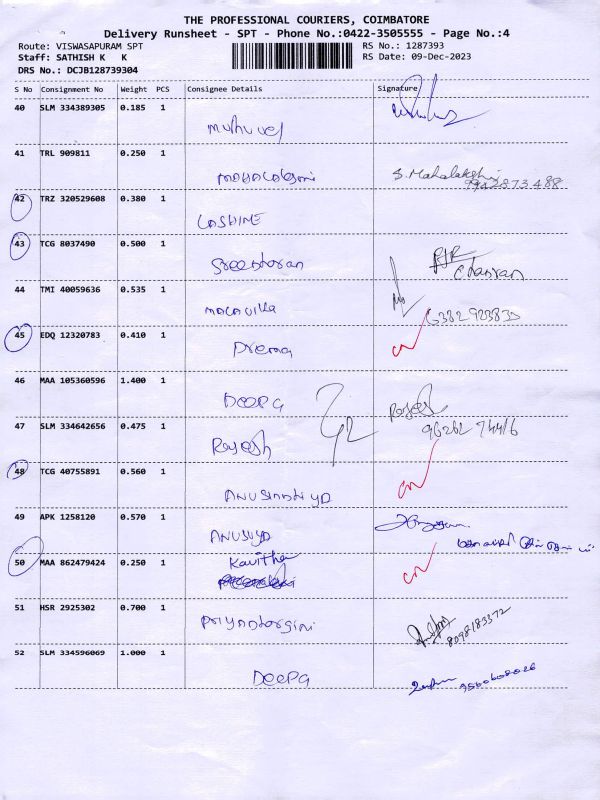 THE PROFESSIONAL COURIERS, COIMBATORE
Delivery Runsheet - SPT - Phone No.:0422-3505555 - Page No.:4
Route: VISWASAPURAM SPT RS No.: 1287393
Staff: SATHISH K K RS Date: 09-Dec-2023
DRS No.: DCJB128739304
S No Consignment No Weight PCS Consignee Details Signature
40 SLM 334389305 0.185 1
muthuvel
41 TRL 909811 0.250 1
mahalakshmi S. Mahalakshmi
9942873488
42 TRZ 320529608 0.380 1
43 TCG 8037490 0.500 1
Sreedharan
44 TMI 40059636 0.535 1
45 EDQ 12320783 0.410 1
Prema
46 MAA 105360596 1.400 1
Deepa
47 SLM 334642656 0.475 1
Rajesh
48 TCG 40755891 0.560 1
49 APK 1258120 0.570 1
Anusuya
50 MAA 862479424 0.250 1
Kavitha
51 HSR 2925302 0.700 1
8098183372
52 SLM 334596069 1.000 1
Deepa